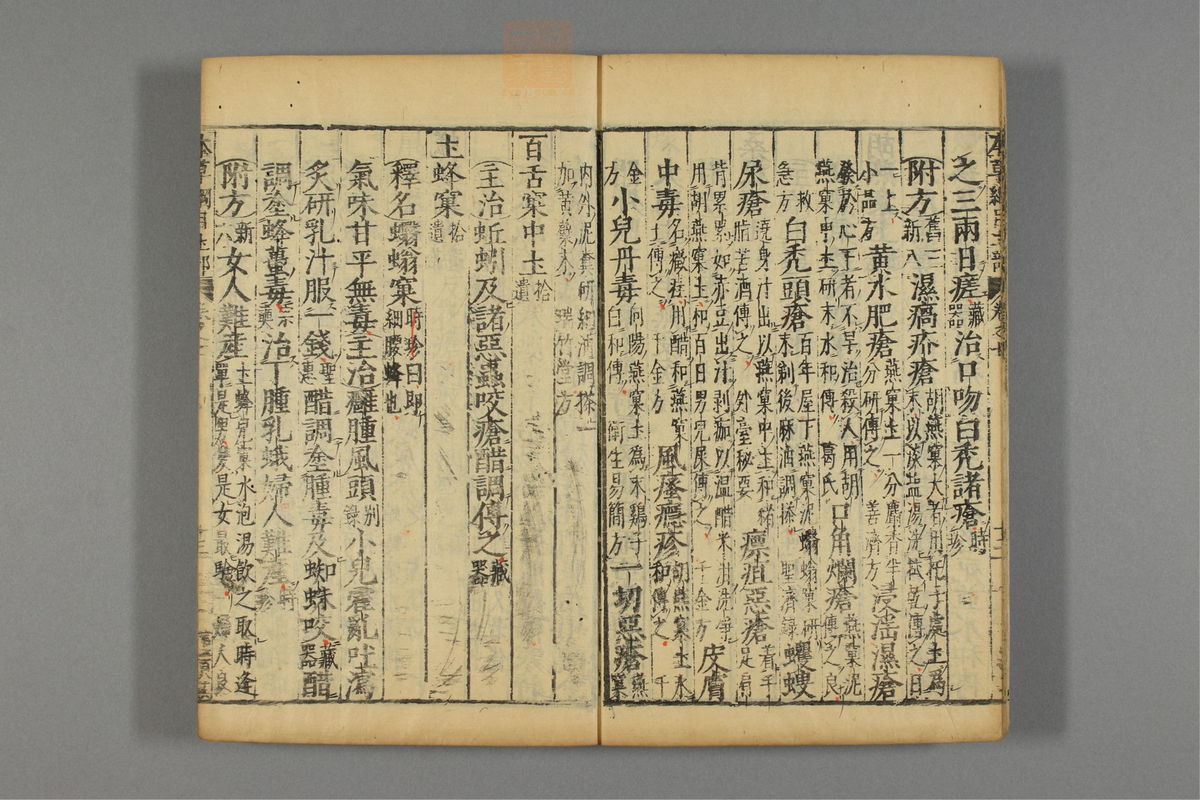 之三兩日瘥藏器治口吻白禿諸瘡時珍
附方舊三新八濕瘑疥瘡胡燕窠大者用托子處土為末以淡鹽湯洗拭乾傅之日
一上小品方黃水肥瘡燕窠土一分麝香半分研傅之善濟方浸淫濕瘡
發於心下者不早治殺人用胡燕窠中土研末水和傅葛氏口角爛瘡燕窠泥傅之良
救急方白禿頭瘡百年屋下燕窠泥蠮螉窠研末剃後麻油調搽聖濟錄蠼螋
尿瘡遶身汁出以燕窠中土和豬脂苦酒傅之外臺秘要瘭疽惡瘡着手足肩
背累累如赤豆出汁剥痂以溫醋米泔洗淨用胡燕窠土和百日男兒尿傅之千金方皮膚
中毒名癥疰用醋和燕窠土傅之千金方風瘙癮疹胡燕窠土水和傅之千
金方小兒丹毒向陽燕窠土為末鷄子白和傅衛生易簡方一切惡瘡燕窠
內外泥糞研細油調搽一加黃蘗末瑞竹堂方
百舌窠中土拾遺
主治蚯蚓及諸惡蟲咬瘡醋調傅之藏器
土蜂窠拾遺
釋名蠮螉窠時珍曰即細腰蜂也
氣味甘平無毒主治癰腫風頭別錄小兒霍亂吐瀉
炙研乳汁服一錢聖惠醋調塗腫毒及蜘蛛咬藏器醋
調塗蜂蠆毒宗奭治丁腫乳蛾婦人難產時珍
附方新六女人難產土蜂兒窠水泡湯飲之取時逢單是男雙是女最驗婦人良